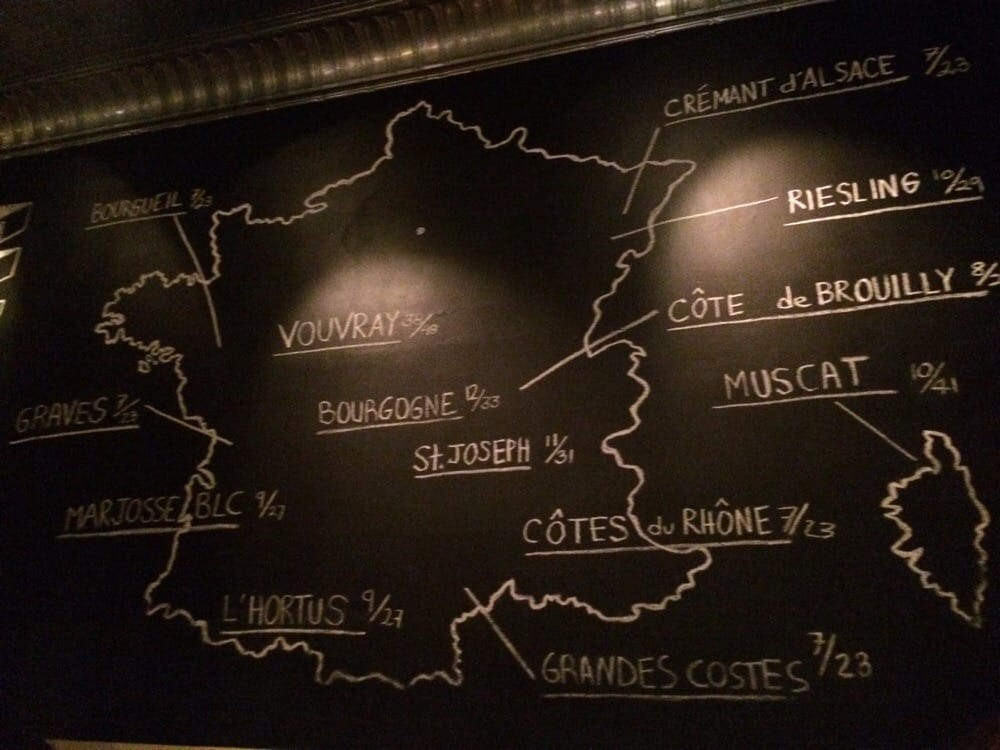 CRÉMANT d'ALSACE 7/23
RIESLING 10/29
BOURGUEIL 7/23
CÔTE de BROUILLY 8/
VOUVRAY 38/48
MUSCAT 10/41
GRAVES 7/23
BOURGOGNE 12/33
St. JOSEPH 11/31
MARJOSSE BLC 9/27
CÔTES du RHÔNE 7/23
L'HORTUS 9/27
GRANDES COSTES 7/23